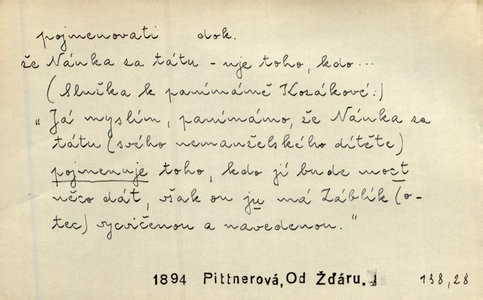 pojmenovati dok.
že Nánka za tátu -uje toho, kdo...
(Služka k panímámě Kozákové:)
„Já myslím, panímámo, že Nánka za
tátu (svého nemanželského dítěte)
pojmenuje toho, kdo jí bude moct
něco dát, však on ju má Záblík (o-
tec) vycvičenou a navedenou."
1894 Pittnerová, Od Žďáru. I 138,28